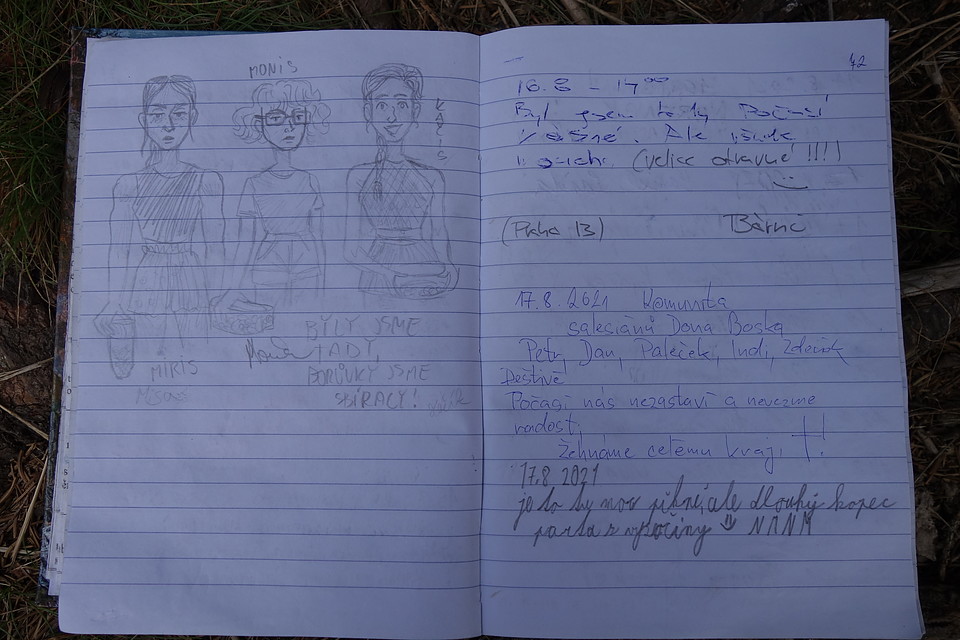 MONIS
KAČIS
MIRIS
BYLY JSME
TADY,
BORŮVKY JSME
SBÍRALY!
42
16.8 - 17⁰⁰
Byl jsem tady Počasí
Ale
(velice otravné!!!!
(Praha 13) Bárni
17.8.2021 Komunita
salesiánů Dona Boska
Petr, Dan, Paleček, Jind, Zdeněk
Deštivé
Počasí nás nezastaví a nevezme
radost,
Žehnáme celému kraji †!
17.8.2021
je to tu moc pěkný, ale dlouhý kopec
parta z vysočiny